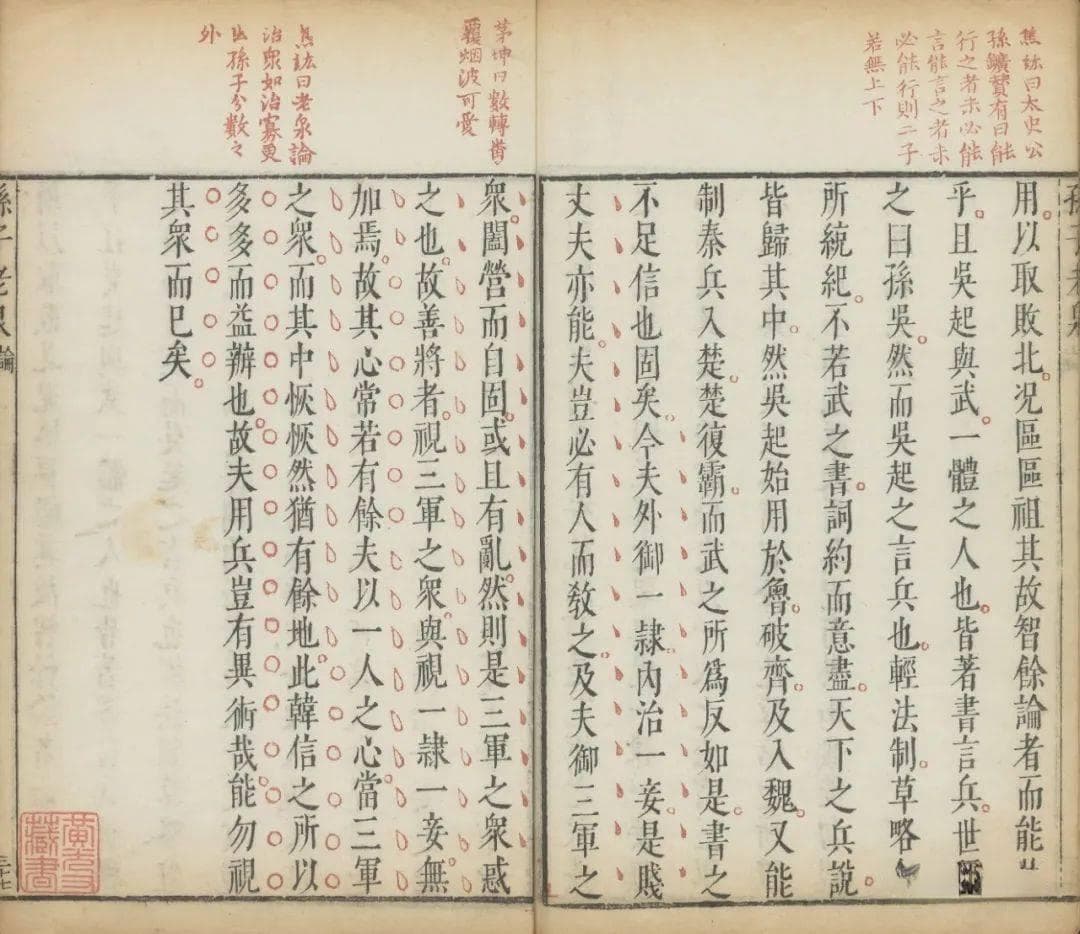 焦竑曰太史公
孫鑛贊有曰能
行之者未必能
言能言之者未
必能行則二子
若無上下
用以取敗北况區區祖其故智餘論者而能
乎且吳起與武一體之人也皆著書言兵世
之曰孫吳然而吳起之言兵也輕法制草略
所統紀不若武之書詞約而意盡天下之兵說
皆歸其中然吳起始用於魯破齊及入魏又能
制秦兵入楚楚復霸而武之所爲反如是書之
不足信也固矣今夫外御一隸內治一妾是賤
丈夫亦能夫豈必有人而敎之及夫御三軍之
茅坤曰數轉
覆烟波可愛
焦竑曰老泉論
治衆如治寡更
出孫子分數之
外
衆闔營而自固或且有亂然則是三軍之衆惑
之也故善將者視三軍之衆與視一隸一妾無
加焉故其心常若有餘夫以一人之心當三軍
之衆而其中恢恢然猶有餘地此韓信之所以
多多而益辦也故夫用兵豈有異術哉能勿視
其衆而已矣
孫子老泉論
三十七
藏書